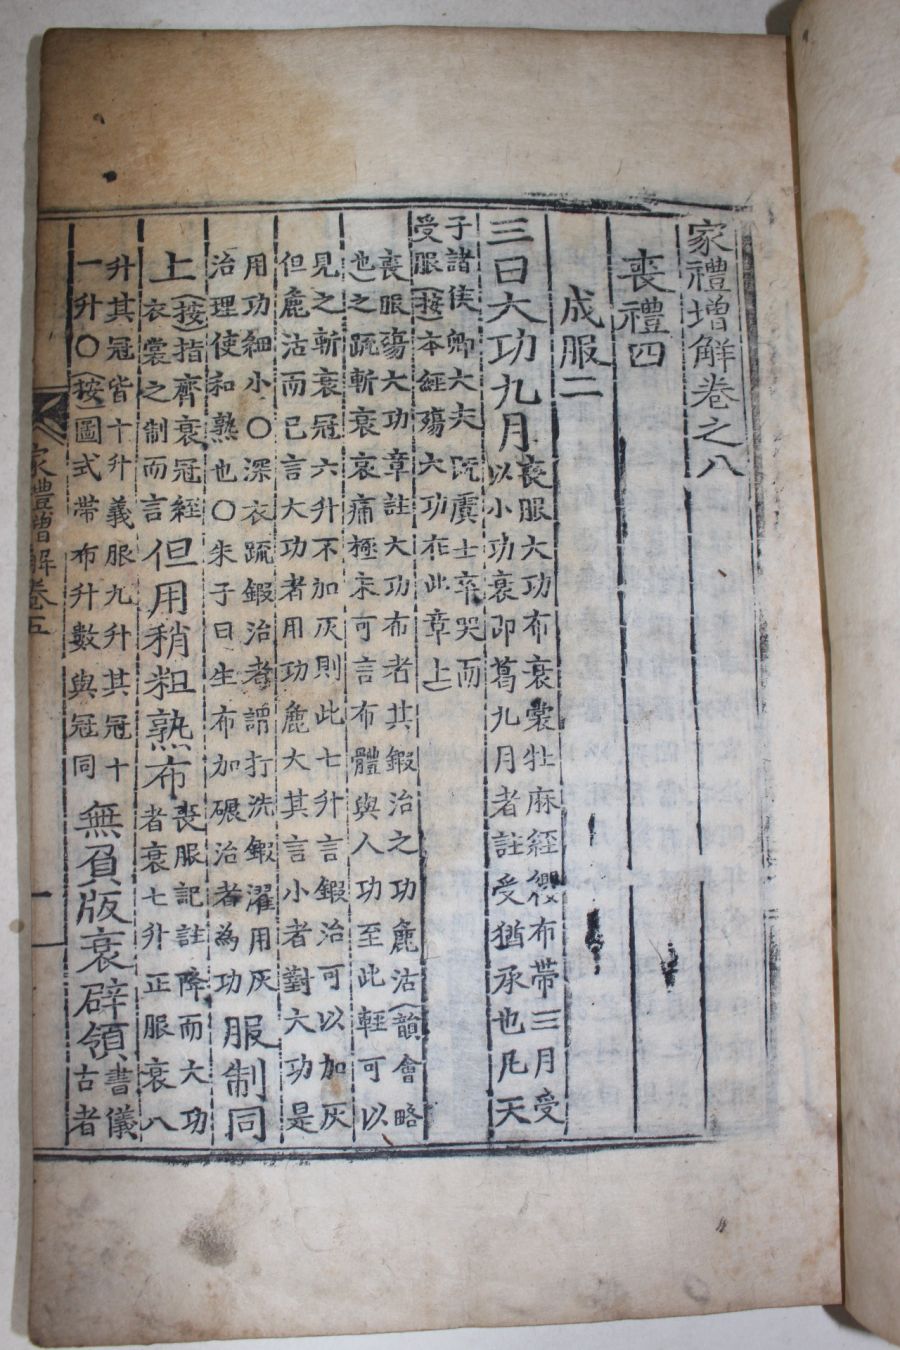 家禮增解卷之八
喪禮四
成服二
三曰大功九月
喪服大功布衰裳牡麻絰纓布帶三月受
以小功衰卽葛九月者註受猶承也凡天
子諸侯卿大夫旣虞士卒哭而
受服(按)本經殤大功在此章上
喪服殤大功章註大功布者其鍜治之功麁沽(韻會略
也)之疏斬衰哀痛極未可言布體與人功至此輕可以
見之斬衰冠六升不加灰則此七升言鍜治可以加灰
但麁沽而已言大功者用功麁大其言小者對大功是
用功細小○深衣疏鍜治者謂打洗鍜濯用灰
治理使和熟也○朱子曰生布加碾治者為功
服制同
上
(按)指齊衰冠絰
衣裳之制而言
但用稍粗熟布
喪服記註降而大功
者衰七升正服衰八
升其冠皆十升義服九升其冠十
一升○(按)圖式帶布升數與冠同
無負版衰辟領
書儀
古者
家禮增解卷五
一